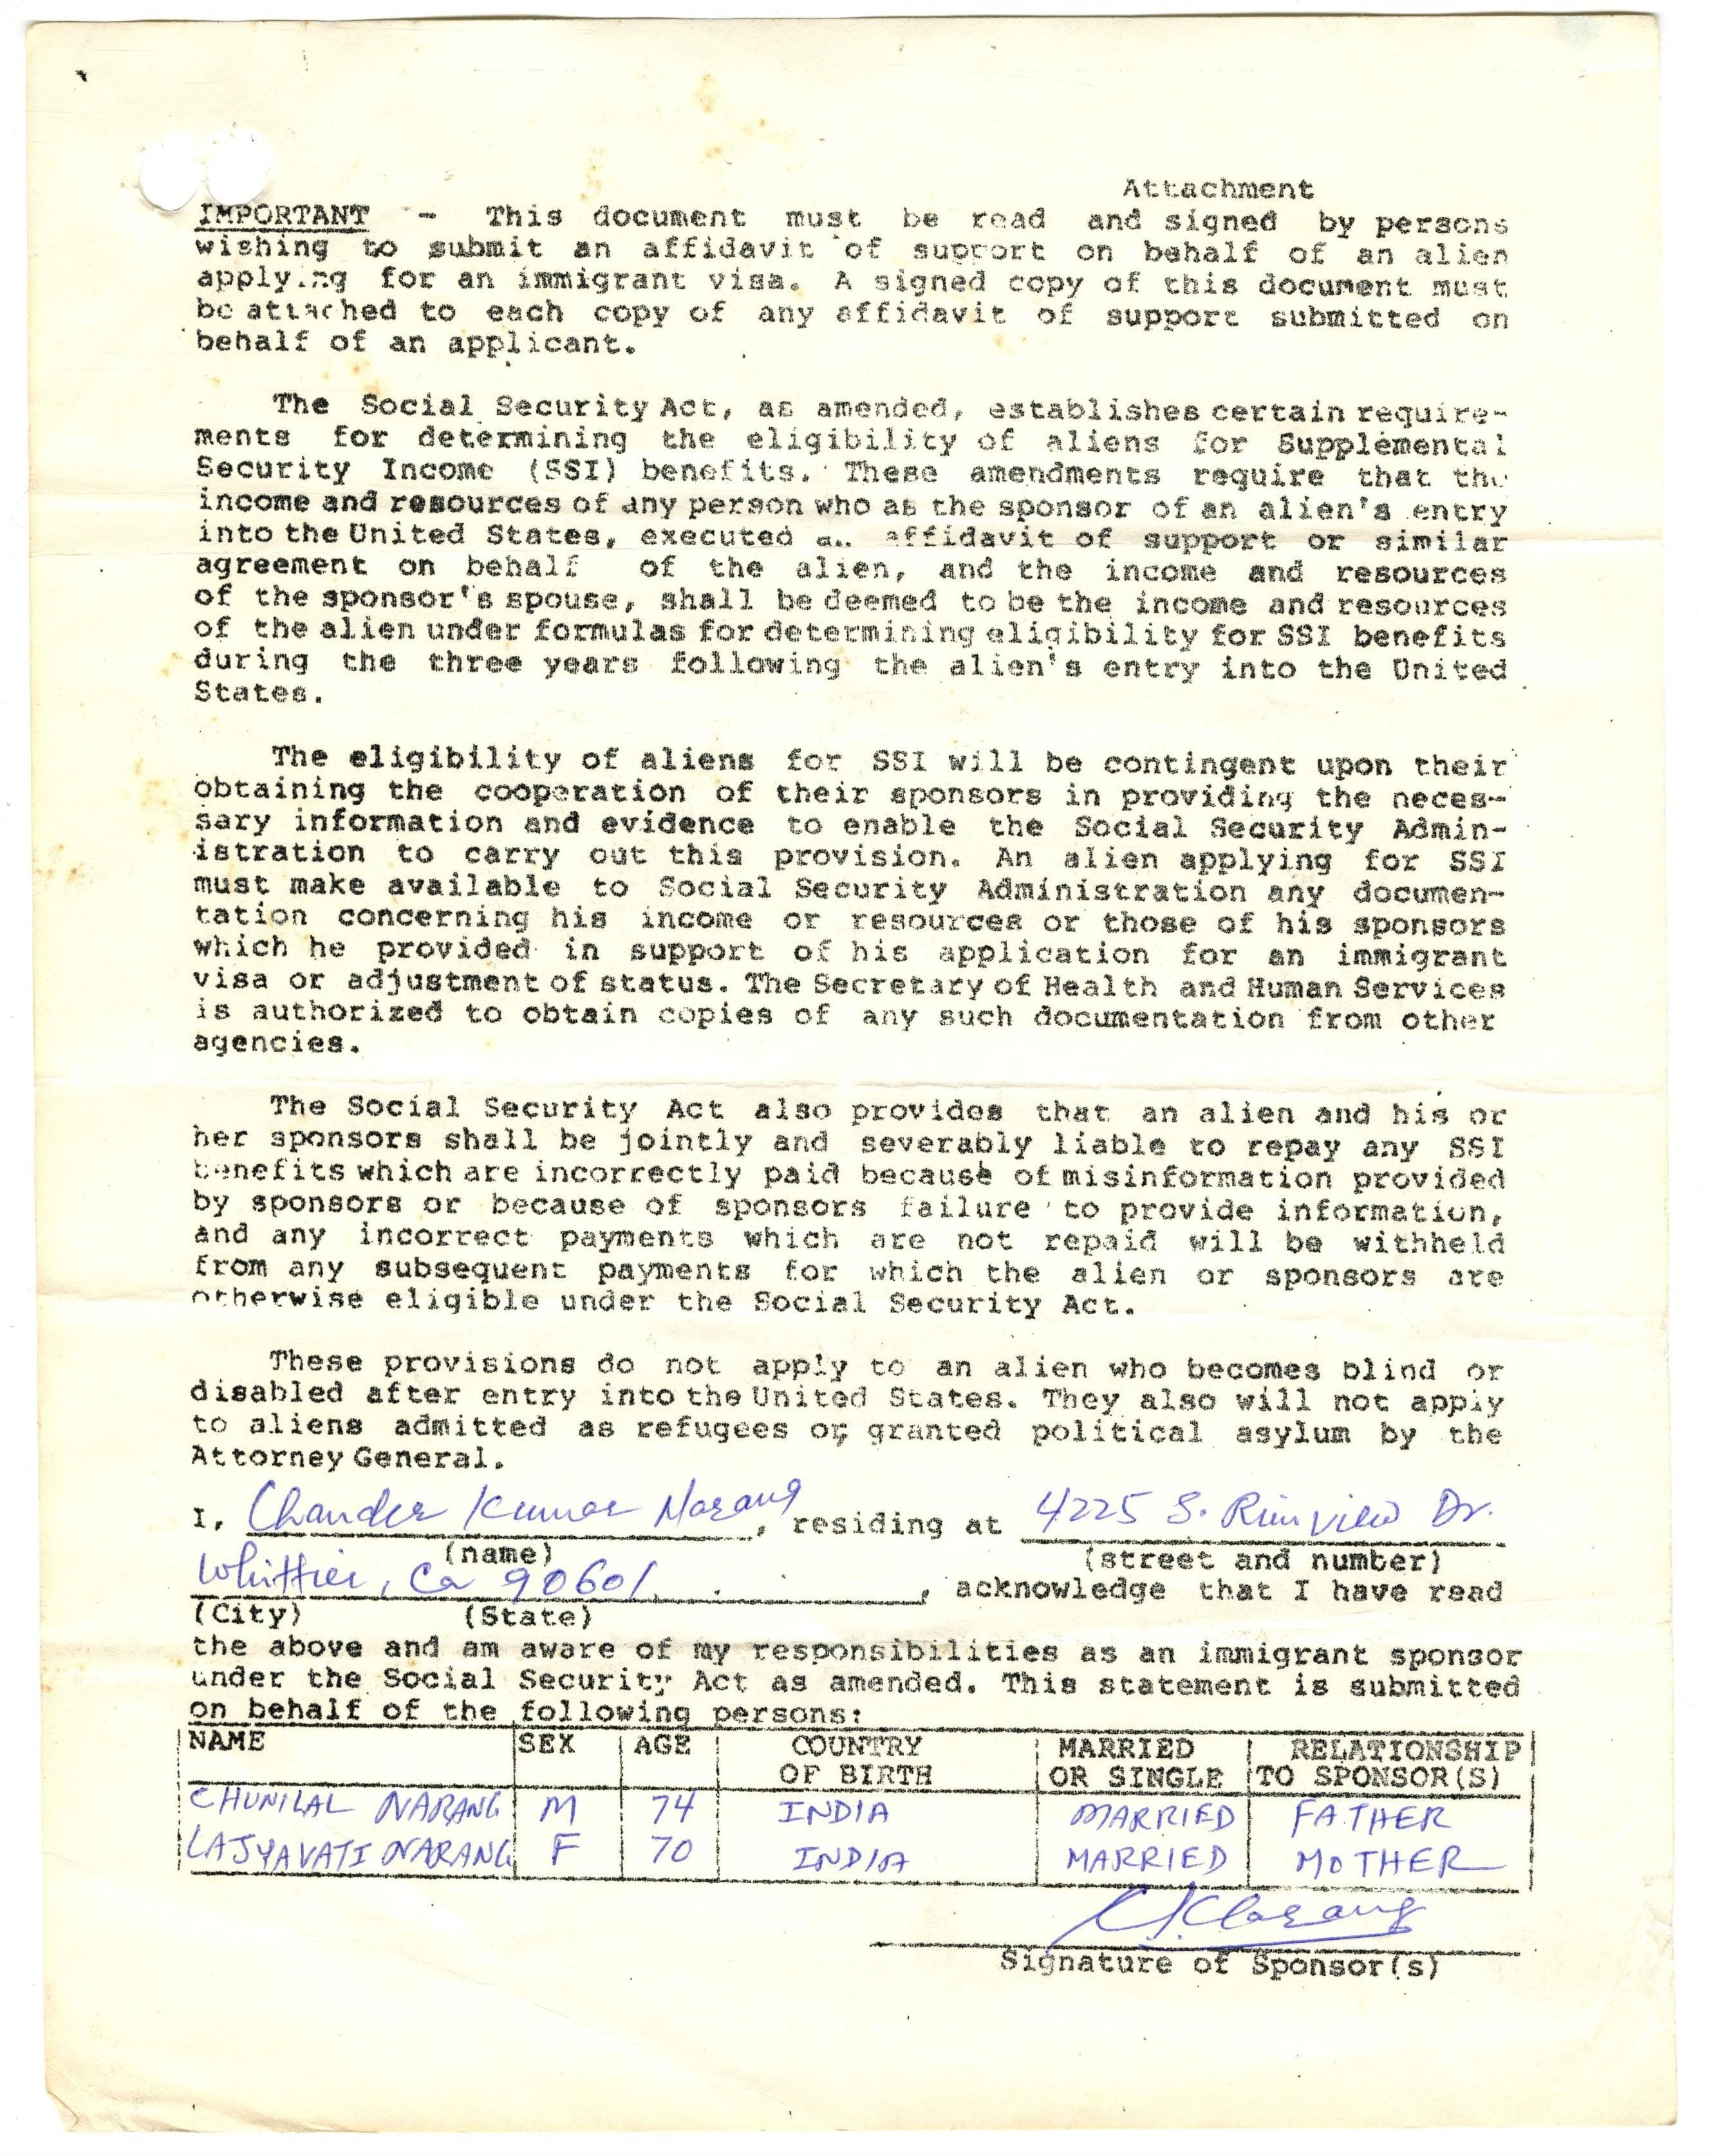 Attachment
IMPORTANT - This document must be read and signed by persons
wishing to submit an affidavit of support on behalf of an alien
applying for an immigrant visa. A signed copy of this document must
be attached to each copy of any affidavit of support submitted on
behalf of an applicant.
The Social Security Act, as amended, establishes certain require-
ments for determining the eligibility of aliens for Supplemental
Security Income (SSI) benefits. These amendments require that the
income and resources of any person who as the sponsor of an alien's entry
into the United States, executed a. affidavit of support or similar
agreement on behalf of the alien, and the income and resources
of the sponsor's spouse, shall be deemed to be the income and resources
of the alien under formulas for determining eligibility for SSI benefits
during the three years following the alien's entry into the United
States.
The eligibility of aliens for SSI will be contingent upon their
obtaining the cooperation of their sponsors in providing the neces-
sary information and evidence to enable the Social Security Admin-
istration to carry out this provision. An alien applying for SSI
must make available to Social Security Administration any documen-
tation concerning his income or resources or those of his sponsors
which he provided in support of his application for an immigrant
visa or adjustment of status. The Secretary of Health and Human Services
is authorized to obtain copies of any such documentation from other
agencies.
The Social Security Act also provides that an alien and his or
her sponsors shall be jointly and severably liable to repay any SSI
benefits which are incorrectly paid because of misinformation provided
by sponsors or because of sponsors failure to provide information,
and any incorrect payments which are not repaid will be withheld
from any subsequent payments for which the alien or sponsors are
otherwise eligible under the Social Security Act.
These provisions do not apply to an alien who becomes blind or
disabled after entry into the United States. They also will not apply
to aliens admitted as refugees or granted political asylum by the
Attorney General.
I, Chander Kumar Narang, residing at 4225 S. Rimview Dr.
(name) (street and number)
Whittier, Ca 90601, acknowledge that I have read
(City) (State)
the above and am aware of my responsibilities as an immigrant sponsor
under the Social Security Act as amended. This statement is submitted
on behalf of the following persons:
NAME SEX AGE COUNTRY OF BIRTH MARRIED OR SINGLE RELATIONSHIP TO SPONSOR(S)
CHUNILAL NARANG M 74 INDIA MARRIED FATHER
LAJYAVATI NARANG F 70 INDIA MARRIED MOTHER
CKNarang
Signature of Sponsor(s)